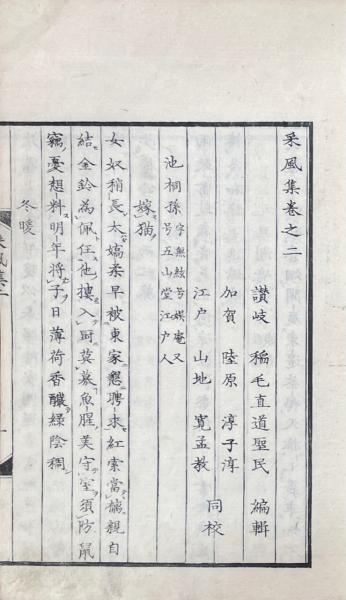 采風集卷之二
讃岐 稲毛直道聖民 編輯
加賀 陸原 淳子淳
江戸 山地 寛孟教 同校
池桐孫 字無絃号娯庵又号五山堂江戸人
嫁猫
女奴稍長太嬌柔早被東家懇聘求紅索當縭親自
結金鈴為佩任他摟入厨莫慕魚腥美守室須防鼠
竊憂想料明年将子日薄荷香醲緑陰稠
冬暖